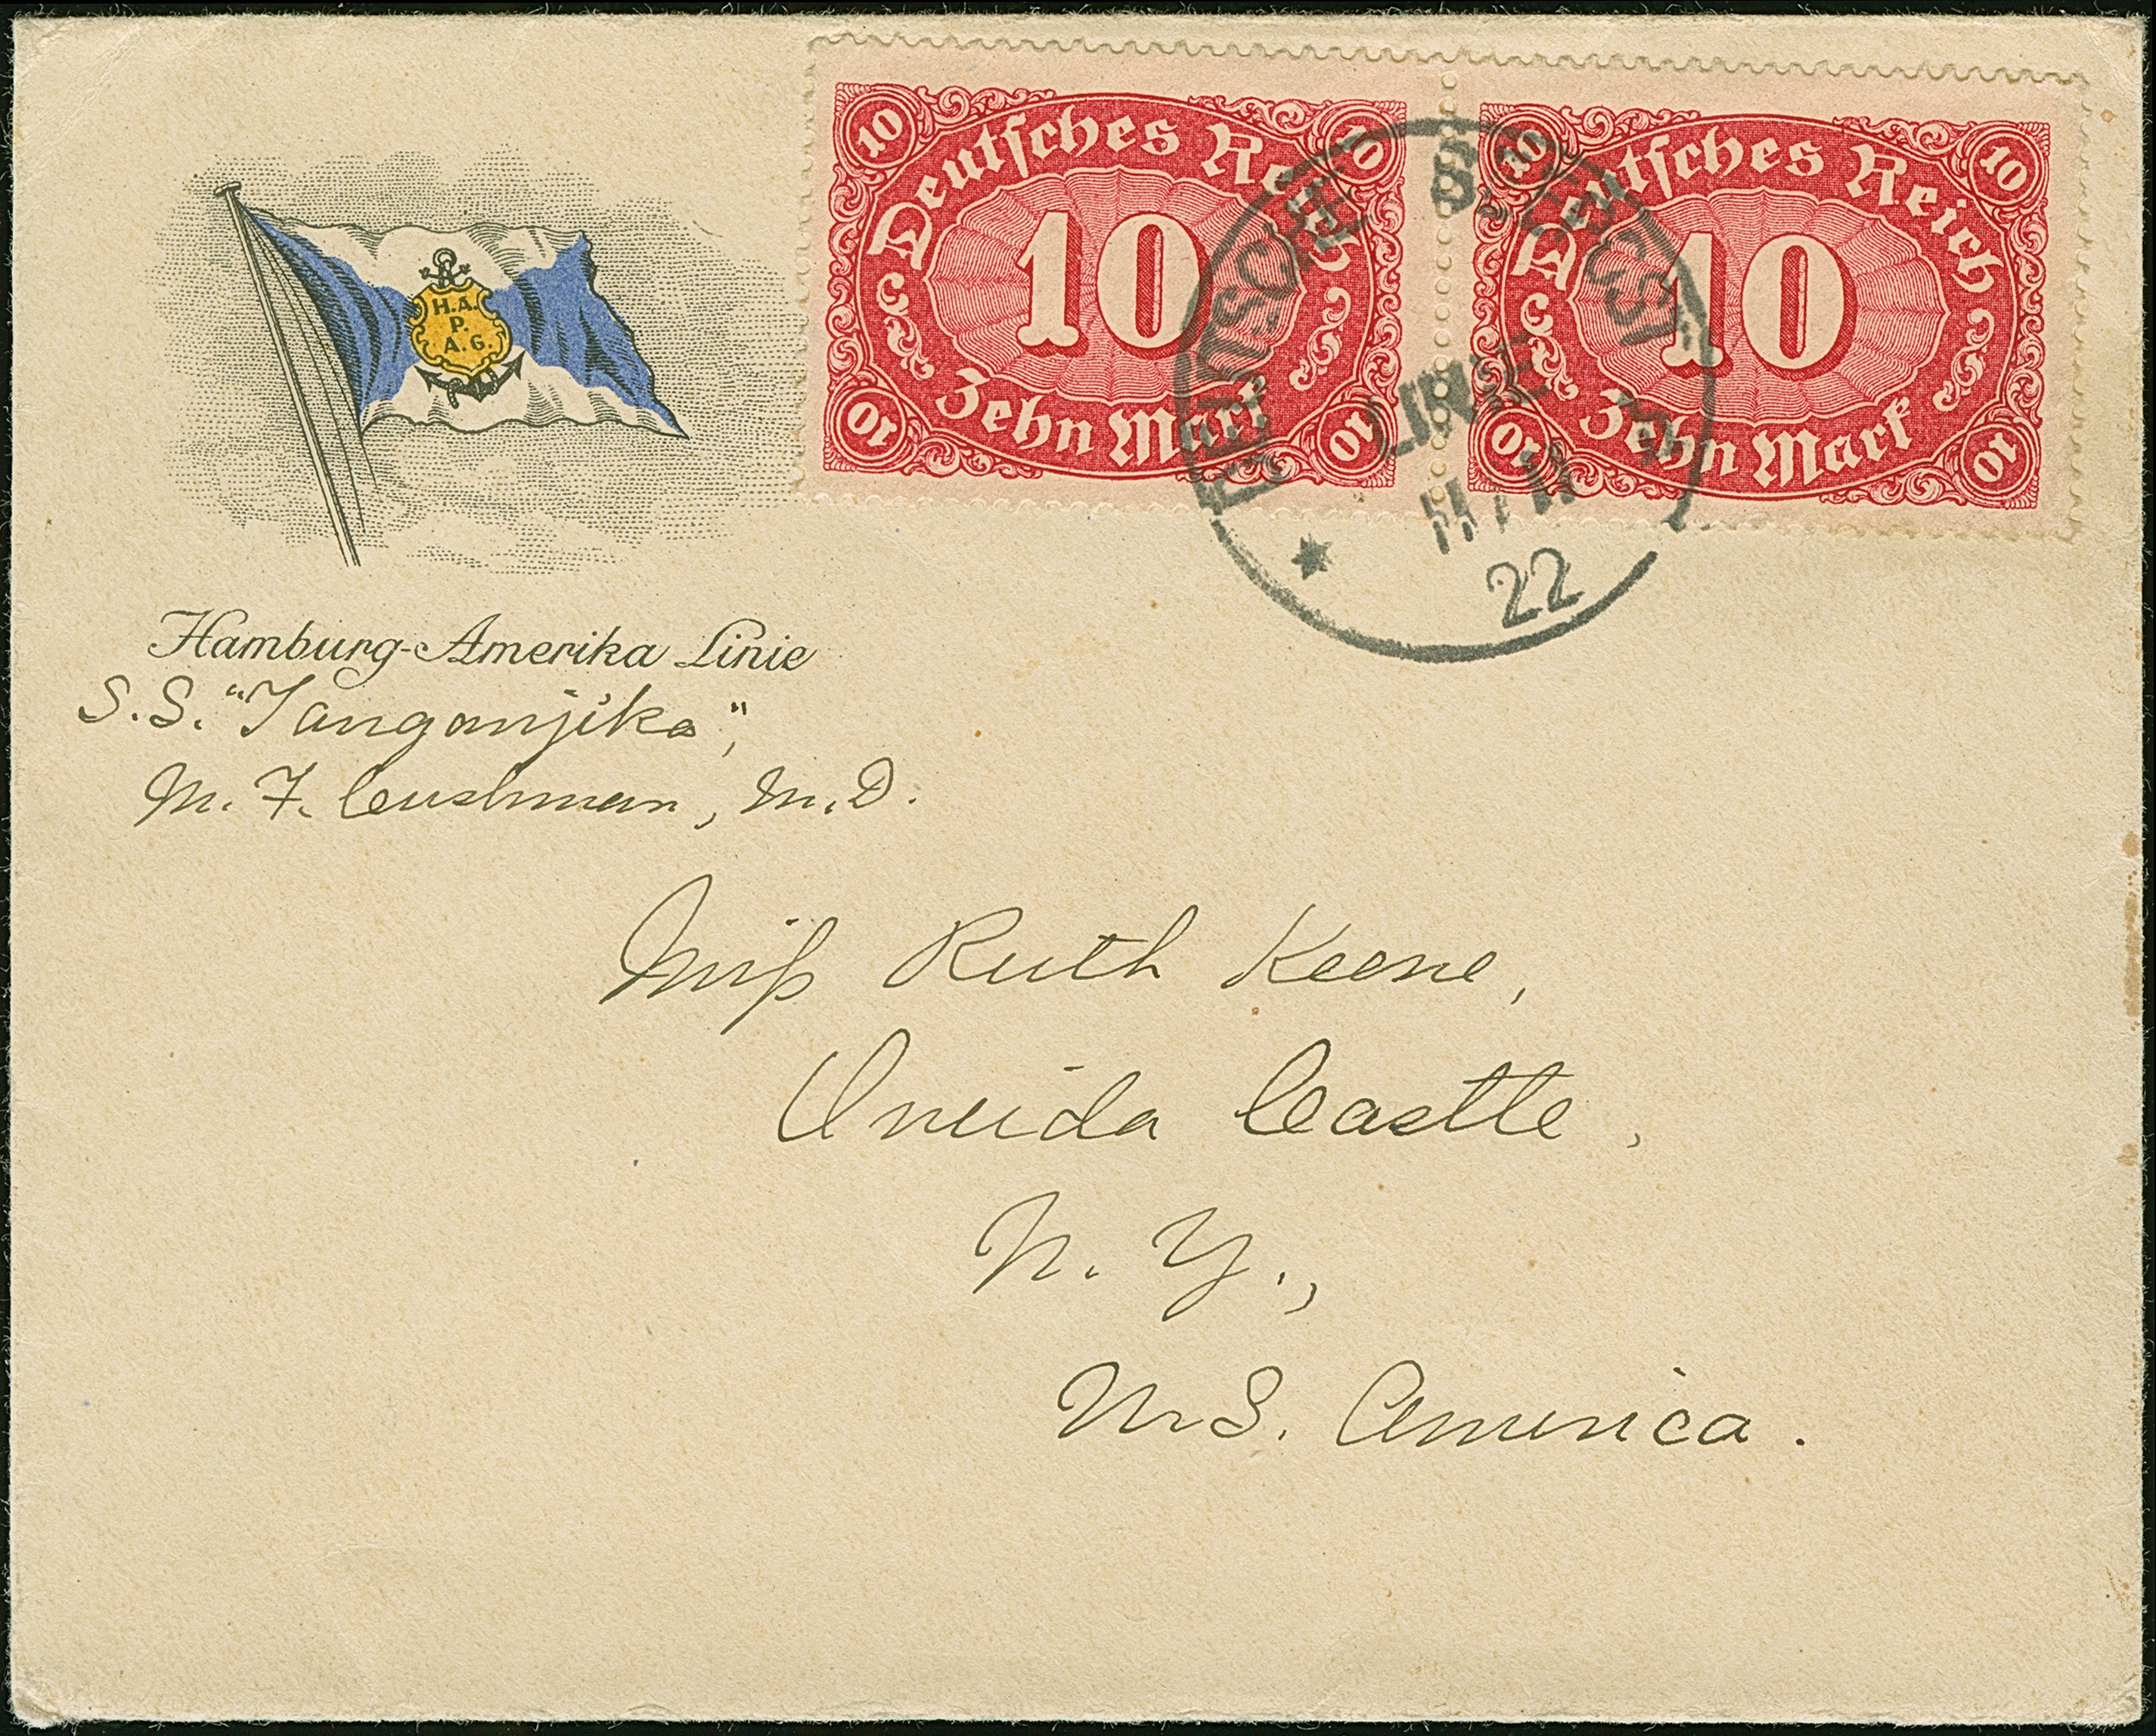 H.A.
P.
A.G.
Hamburg-Amerika Linie
S.S. "Tanganjika",
M. F. Cushman, M.D.
10 10
Deutsches Reich
10
Zehn Mark
10 10
10 10
Deutsches Reich
10
Zehn Mark
10 10
DEUTSCHE SEEPOST
LINIE
22
Miss Ruth Keene,
Oneida Castle,
N. Y.,
U.S. America.